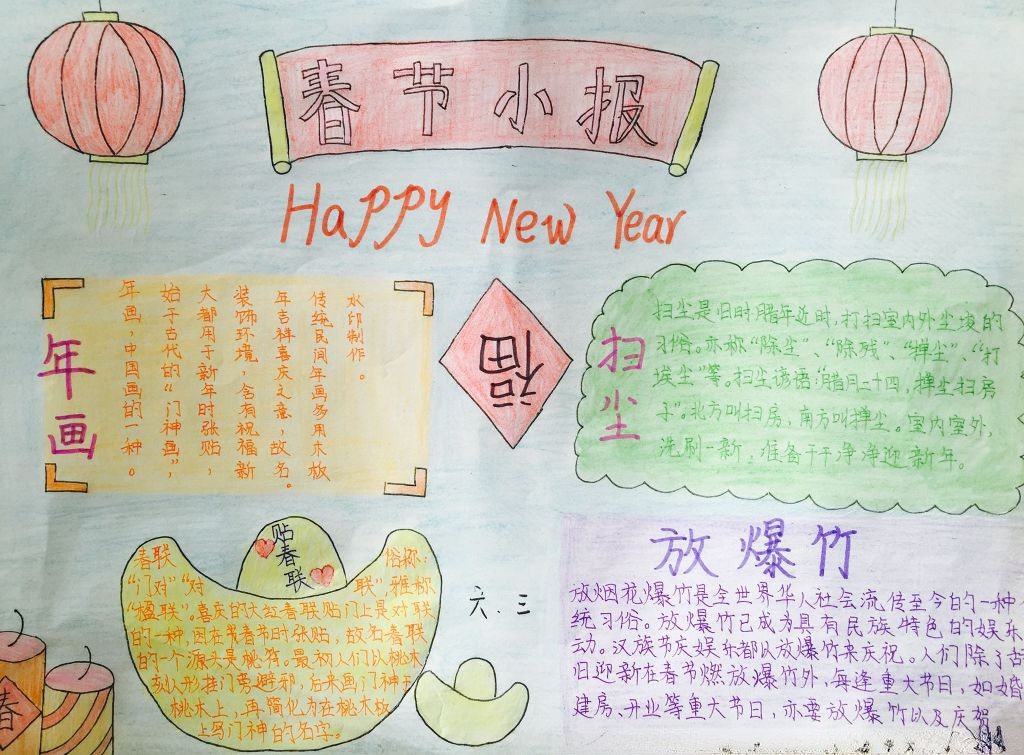 春节小报
Happy New Year
年画
年画,中国画的一种。
始于古代的“门神画”,
大都用于新年时张贴,
装饰环境,含有祝福新
年吉祥喜庆之意,故名。
传统民间年画多用木板
水印制作。
福
扫尘
扫尘是旧时腊年近时,打扫室内外尘埃的
习俗。亦称“除尘”、“除残”、“掸尘”、“打
埃尘”等。扫尘谚语:“腊月二十四,掸尘扫房
子”。北方叫扫房,南方叫掸尘。室内室外,
洗刷一新,准备干干净净迎新年。
贴春联
春联 俗称:
“门对”“对 联”,雅称
“楹联”。喜庆的大红春联贴门上是对联
的一种,因在节春节时张贴,故名春联
的一个源头是桃符。最初人们以桃木
刻人形挂门旁避邪,后来画门神于
桃木上,再简化为在桃木板
上写门神的名字。
六.三
放爆竹
放烟花爆竹是全世界华人社会流传至今的一种
统习俗。放爆竹已成为具有民族特色的娱乐
动。汉族节庆娱乐都以放爆竹来庆祝。人们除了
旧迎新在春节燃放爆竹外,每逢重大节日,如婚
建房、开业等重大节日,亦要放爆竹以及庆贺
春